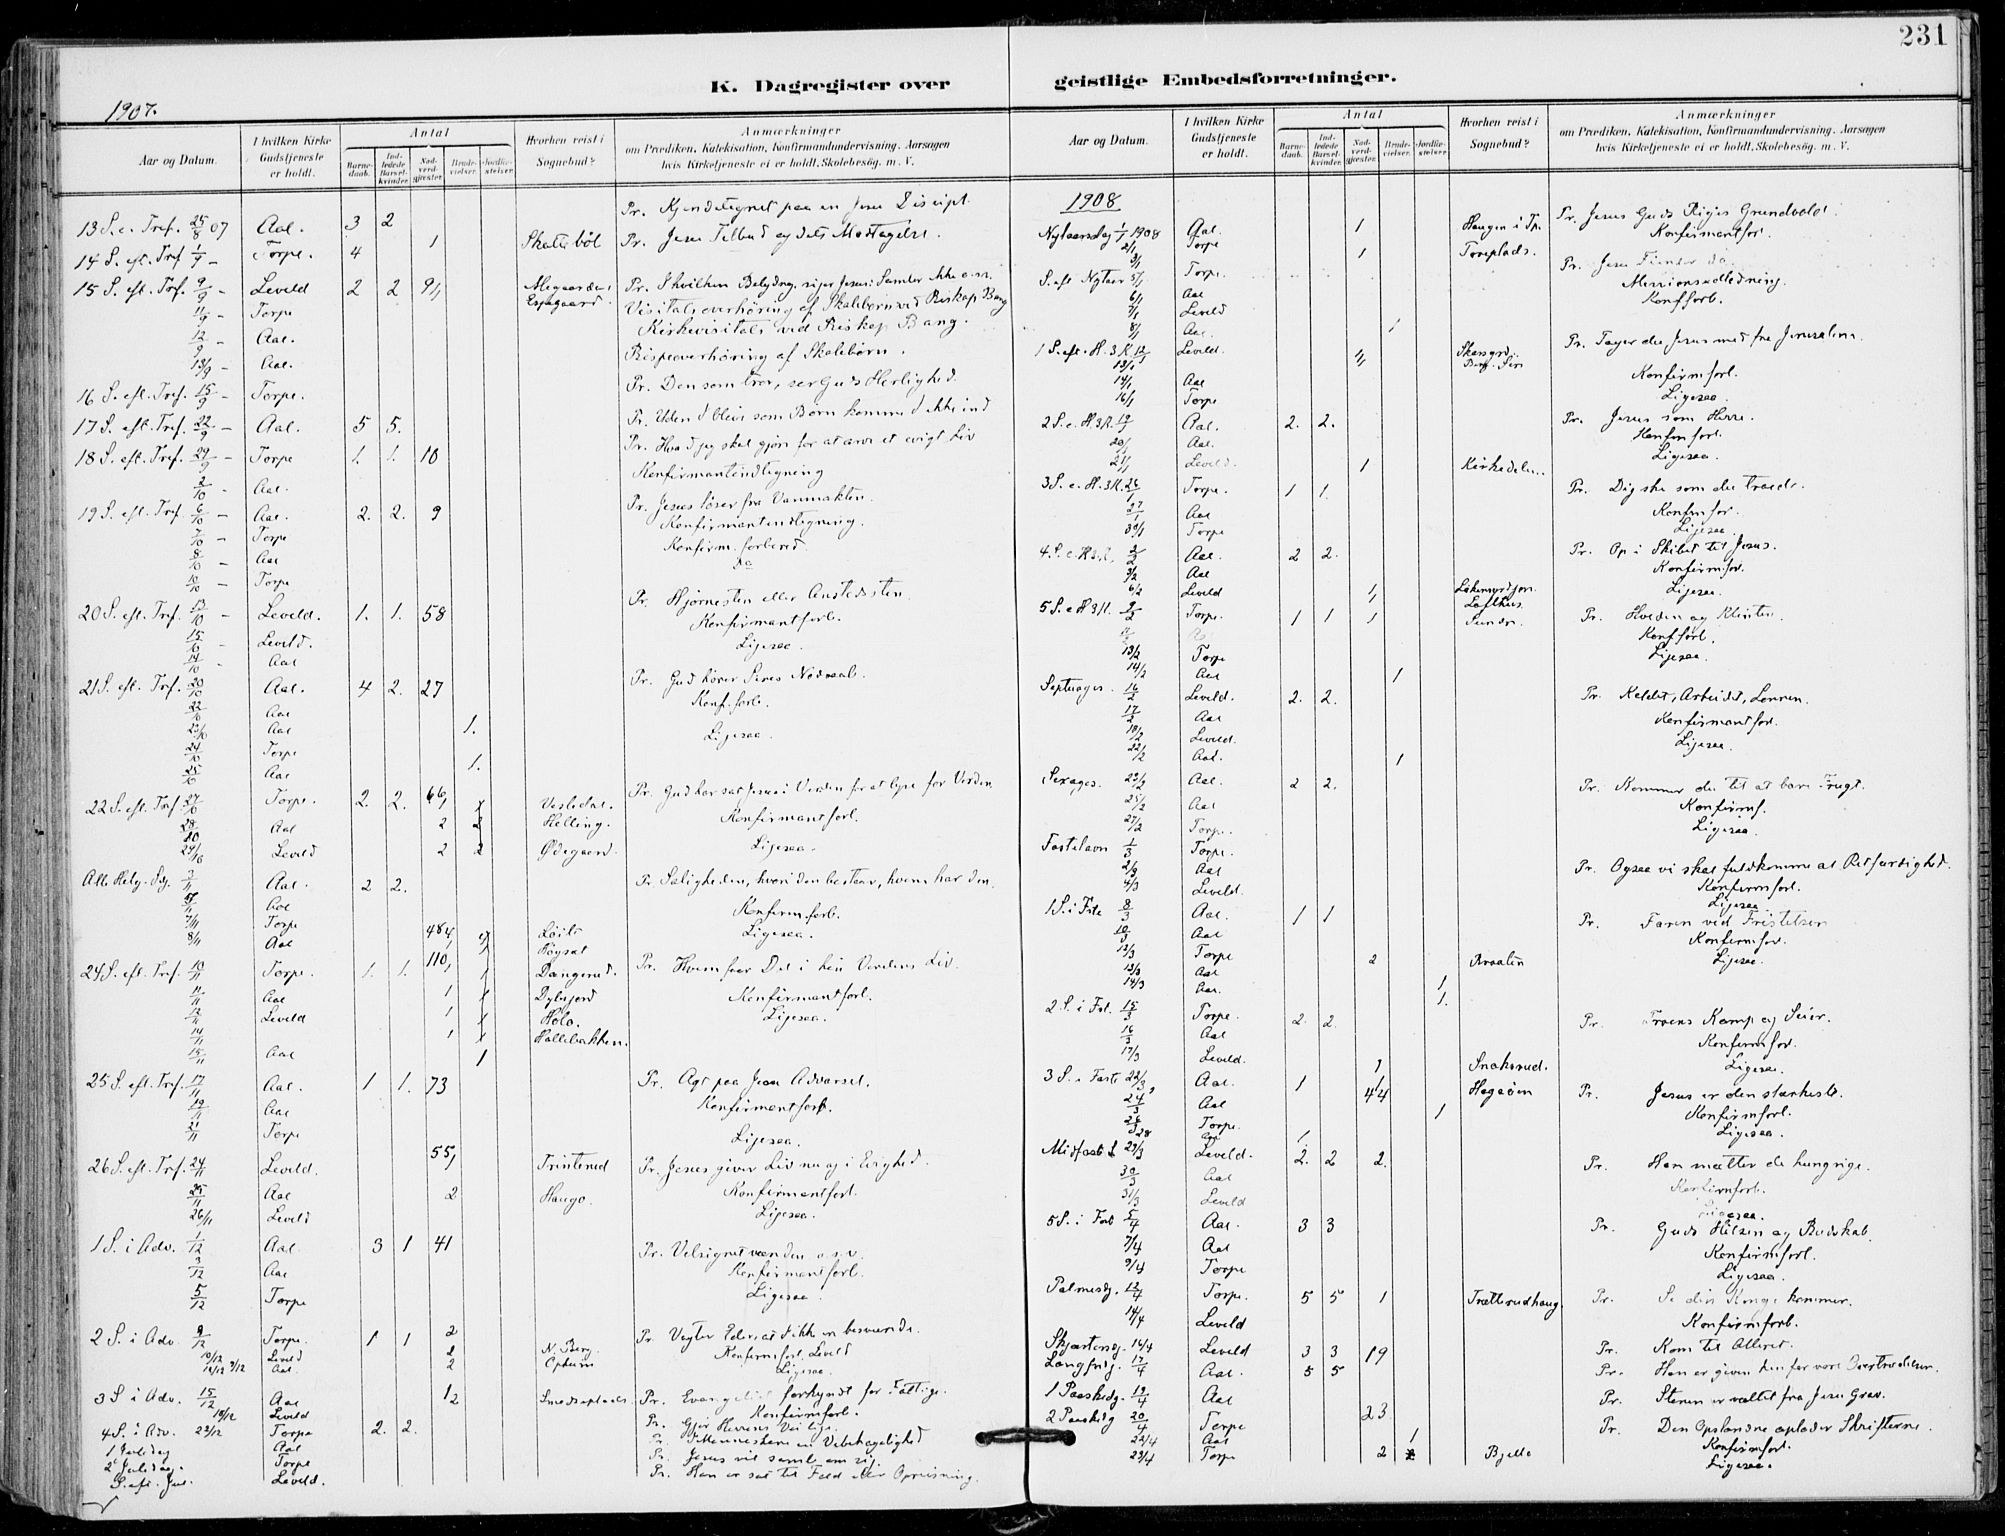 231
K. Dagregister over geistlige Embedsforretninger.
1907.
Aar og Datum.
I hvilken Kirke Gudstjeneste er holdt.
Antal
Barnedaab.
Indledede Barselkvinder.
Nadverdgjester.
Brudevielser.
Jordfæstelser.
Hvorhen reist i Sognebud?
Anmærkninger
om Prædiken, Katekisation, Konfirmandundervisning. Aarsagen
hvis Kirketjeneste ei er holdt, Skolebesög. m. V.
13 S. e. Tref. 25/8 07 Aal. 3 2 Pr. Kjendetegnet paa en Jesu Discipel
14 S. eft. Tref 1/9 – Torpe. 4 1 Pr. Jesu Tilbud og dets Modtagelse.
15 S. eft. Tref. 9/9 – Leveld 2 2 Pr.
11/9 – Torpe Visitatsoverhøring af Skolebørn ved Biskop Bang
12/9 – Aal. Kirkevisitats ved Biskop Bang.
13/9 – Aal. Bispeoverhöring af Skolebörn.
16 S. eft. Tref. 15/9 – Torpe. Pr. Den som tror, ser Guds Herlighed
17 S. eft. Tref. 22/9 – Aal. 5 5. Pr. Uden I blive som Börn komme I ikke ind
18 S. eft. Tref. 29/9 – Torpe 1. 1. 10 Pr. Hvad jeg skal gjøre for at arve et evigt Liv
2/10 - Aal. Konfirmantindtegning
19 S. eft. Tref. 6/10 – Aal. 2. 2. 9 Pr. Jesus löser fra Vanmakten.
7/10 – Torpe Konfirmantindtegning.
8/10 – Aal Konfirm.forbered.
10/10 – Torpe do
20 S. eft. Tref. 13/10 – Leveld. 1. 1. 58 Pr. Hjørnesten eller Anstödssten.
15/10 - Leveld. Konfirmantforb.
14/10 - Aal Ligesaa.
21 S. eft. Tref. 20/10 Aal. 4 2. 27 Pr. Gud hører Sines Nödraab.
22/10 Aal Konf.forb.
23/10 Aal 1. Ligesaa
24/10 Torpe
25/10 Aal 1.
22 S. eft. Tref 27/10 Torpe. 2. 2. 66, Vesledal. Pr. Gud har sat Jesus i Verden for at lyse for Verden
28/10 Aal 2 Helling. Konfirmantforb.
29/10 Leveld 2 2 Ødegaard. Ligesaa.
Alle Helg. Sg. 3/11 Aal. 2 2. Pr. Saligheden, hvori den bestaar, hvem har den.
Aal Konfirmforb.
7/11 Torpe Ligesaa.
8/11 Aal
24 S. eft. Tref. 10/11 Torpe. 1. 1. 110, Dangerud. Pr.
11/11 Aal 1 Konfirmantforb.
12/11 Leveld 1 Holo. Ligesaa.
14/11 1 Hallebakken.
15/11 Aal 1
25 S. eft. Tref. 17/11 Aal. 1 1. 73 Pr. Agt paa Jesu Advarsel.
19/11 Aal Konfirmantforb.
21/11 Torpe Ligesaa.
26 S. eft. Tref. 24/11 Leveld. 55, Trinterud Pr. Jesus giver Liv nu og i Evighed.
25/11 Aal 2 Haugo. Konfirmantforb.
26/11 Leveld Ligesaa.
1 S. i Adv. 1/12 Aal 3 1 41 Pr. Velsignet være den o.s.v.
3/12 Aal Konfirmantforb.
5/12 Torpe Ligesaa
2 S. i Adv. 8/12 Torpe. 1 1 2 Pr. Vogter Eder at I ikke
10/12 Leveld 2 N. Berg. Konfirmforb. Leveld
Aal. 2 Opheim Ligesaa
3 S i Adv. 15/12 Aal 12 Pr. Evangeliet forkyndt for Fattige.
19/12 Leveld Konfirmforb.
4 S. i Adv. 22/12 Torpe 2. 2. Pr. Gjör Herrens Vei
1 Juledag Aal Pr. Menneskene en Velbehagelighed
2 Juledag. Torpe Pr. Jesus vil samle om sig.
S. eft. Jul. Leveld. Pr. Han er sat til Fald eller Opreisning.
Aar og Datum.
I hvilken Kirke Gudstjeneste er holdt.
Antal
Barnedaab.
Indledede Barselkvinder.
Nadverdgjester.
Brudevielser.
Jordfæstelser.
Hvorhen reist i Sognebud?
Anmærkninger
om Prædiken, Katekisation, Konfirmandundervisning. Aarsagen
hvis Kirketjeneste ei er holdt, Skolebesög. m. V.
1908
Nytaarsdag 1/1 1908 Aal. 1 Haugen i Tp. Pr. Jesus Guds Riges Grundvold.
2/1 Torpe 1 Torpeplads. Konfirmantfor.
S. eft Nytaar 5/1 Torpe. Pr. Jesu Fiender
6/1 Aal
7/1 Leveld Konfforb.
8/1 Aal. 1
1 S. eft. H. 3 K. 12/1 Leveld. Pr. Tager du Jesus med fra Jerusalem.
13/1
14/1 Aal Konfirmforb.
16/1 Torpe Ligesaa.
2 S. e. H. 3 K. 19/1 Aal. 2. 2. Pr. Jesus som Herre.
20/1 Aal. Konfirmforb.
21/1 Leveld. 1 Kirkedelen. Ligesaa.
3 S. e. H. 3 K. 26/1 Torpe. 1 1. Pr. Dig ske som du troede.
27/1 Aal Konfirmfor.
30/1 Torpe Ligesaa
4. S. e. H 3 K. 2/2 Aal. 2 2. Pr. Op i Skibet til Jesus.
3/2 Aal Konfirmfor.
6/2 Leveld Ligesaa.
5 S. e H 3 K. 9/2 Torpe. 1 1 Lofthus Pr. Hveden og Klinten
Konfforb.
13/2 Torpe Ligesaa.
14/2 Aal 1
Septuages. 16/2 Leveld. 2. 2. Pr. Kaldet, Arbeidet, Lønnen.
17/2 Aal Konfirmantfor.
18/2 Leveld. Ligesaa
22/2 Aal. 1
Sexages. 23/2 Aal. 2 2. Pr. Kommer du til at bære Frugt.
25/2 Aal Konfirmf.
27/2 Torpe. Ligesaa
Fastelavn 1/3 Torpe. Pr. Ogsaa vi skal fuldkomme al Retfærdighed.
2/3 Aal Konfirmforb.
4/3 Leveld. Ligesaa
1 S. i Faste 8/3 Aal. 1 1 Pr. Faren ved Fristelser
10/3 Aal Konfirmfor.
12/3 Torpe 2 Braaten Ligesaa.
13/3 Aal
14/3 Aal. 1
2 S. i Fat. 15/3 Torpe. 2. 2. Pr. Troens Kamp og Seier.
16/3 Aal Konfirmfor.
17/3 Leveld. 1 Snakerud. Ligesaa.
3 S. i Faste 22/3 Aal. 1 44 Hageöen Pr. Jesus er den stærkeste.
24/3 Aal 1 Konfirmforb.
26/3 Torpe. Ligesaa.
Midfaste S 29/3 Leveld. 2. 2 2. Pr. Han mætter de hungrige.
30/3 Aal Konfirmforb.
31/3 Leveld Ligesaa.
5 S. i Fast 5/4 Aal. 3 3 Pr. Guds Hilsen og Budskab.
7/4 Aal Konfirmforb.
9/4 Torpe Ligesaa.
Palmesdg. 12/4 Torpe. 5 5 1 Trætterudhaug. Pr. Se din Konge kommer.
14/4 Leveld Konfirmforb.
Skjærtorsg. 16/4 Leveld 3 3 19 Pr. Kom til Alteret.
Langfrdg. 17/4 Aal. 5 5 Pr. Han er given hen for vore Overtrædelser.
1 Paaskedg. 19/4 Aal Pr. Stenen er væltet fra Jesu Grav.
2 Paaskedg 20/4 Torpe 23 Pr. Den Opstandne oplader Skrifterne.
22/4 Aal 1 Konfirmfor.
23/4 Torpe 2 Bjella Ligesaa.